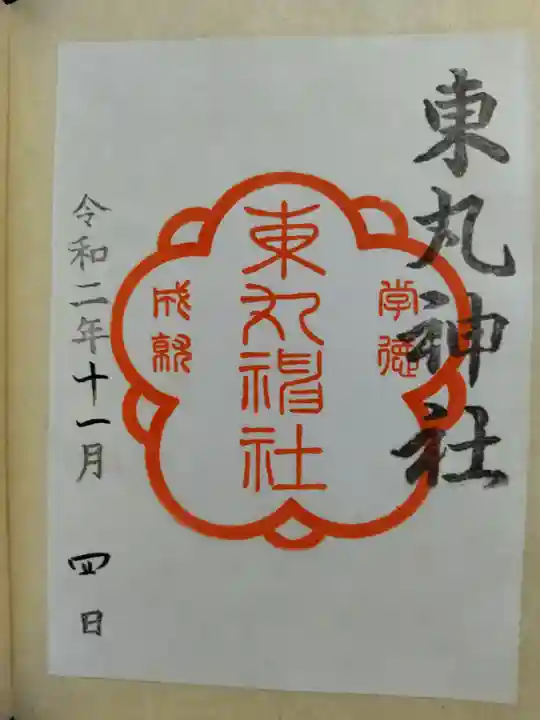 東丸神社
学徳
東丸神社
成就
令和二年十一月 四日